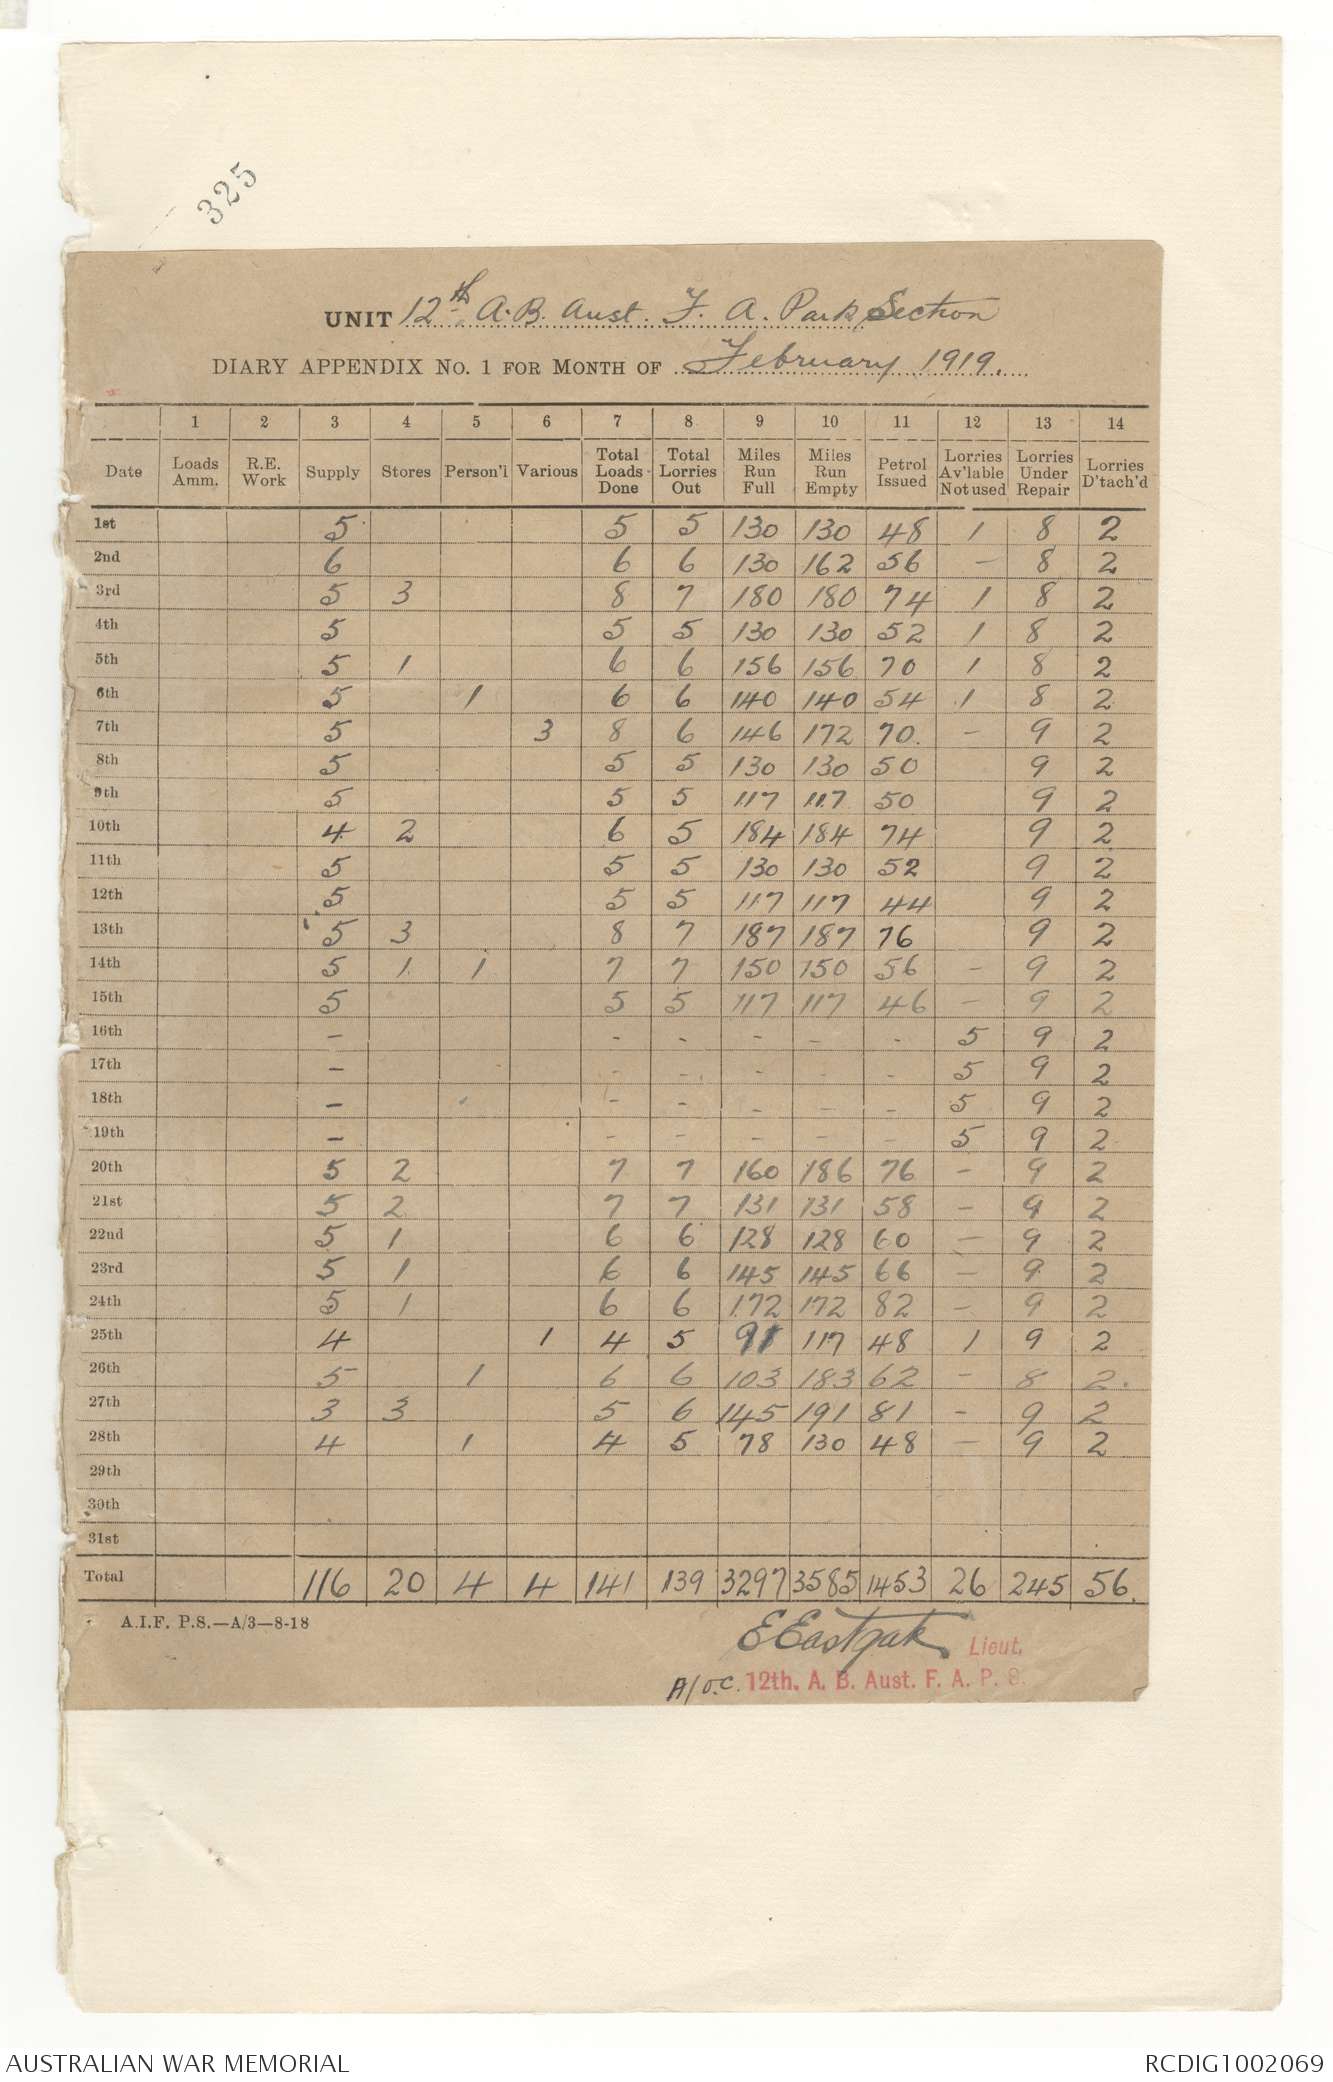 325
UNIT 12th A.B. Aust. F. A. Park Section
DIARY APPENDIX No. 1 FOR MONTH OF February 1919.
1 2 3 4 5 6 7 8 9 10 11 12 13 14
Date Loads Amm. R.E. Work Supply Stores Person'l Various Total Loads Done Total Lorries Out Miles Run Full Miles Run Empty Petrol Issued Lorries Av'lable Not used Lorries Under Repair Lorries D'tach'd
1st 5 5 5 130 130 48 1 8 2
2nd 6 6 6 130 162 56 - 8 2
3rd 5 3 8 7 180 180 74 1 8 2
4th 5 5 5 130 130 52 1 8 2
5th 5 1 6 6 156 156 70 1 8 2
6th 5 1 6 6 140 140 54 1 8 2
7th 5 3 8 6 146 172 70. - 9 2
8th 5 5 5 130 130 50 9 2
9th 5 5 5 117 117 50 9 2
10th 4 2 6 5 184 184 74 9 2
11th 5 5 5 130 130 52 9 2
12th 5 5 5 117 117 44 9 2
13th 5 3 8 7 187 187 76 9 2
14th 5 1 1 7 7 150 150 56 - 9 2
15th 5 5 5 117 117 46 - 9 2
16th - - - - - - 5 9 2
17th - - - - - - 5 9 2
18th - - - - - - 5 9 2
19th - - - - - - 5 9 2
20th 5 2 7 7 160 186 76 - 9 2
21st 5 2 7 7 131 131 58 - 9 2
22nd 5 1 6 6 128 128 60 - 9 2
23rd 5 1 6 6 145 145 66 - 9 2
24th 5 1 6 6 172 172 82 - 9 2
25th 4 1 4 5 91 117 48 1 9 2
26th 5 1 6 6 103 183 62 - 8 2.
27th 3 3 5 6 145 191 81 - 9 2
28th 4 1 4 5 78 130 48 - 9 2
29th
30th
31st
Total 116 20 4 4 141 139 3297 3585 1453 26 245 56.
A.I.F. P.S.—A/3—8-18
Lieut.
A/O.C. 12th. A. B. Aust. F. A. P. S.
AUSTRALIAN WAR MEMORIAL RCDIG1002069